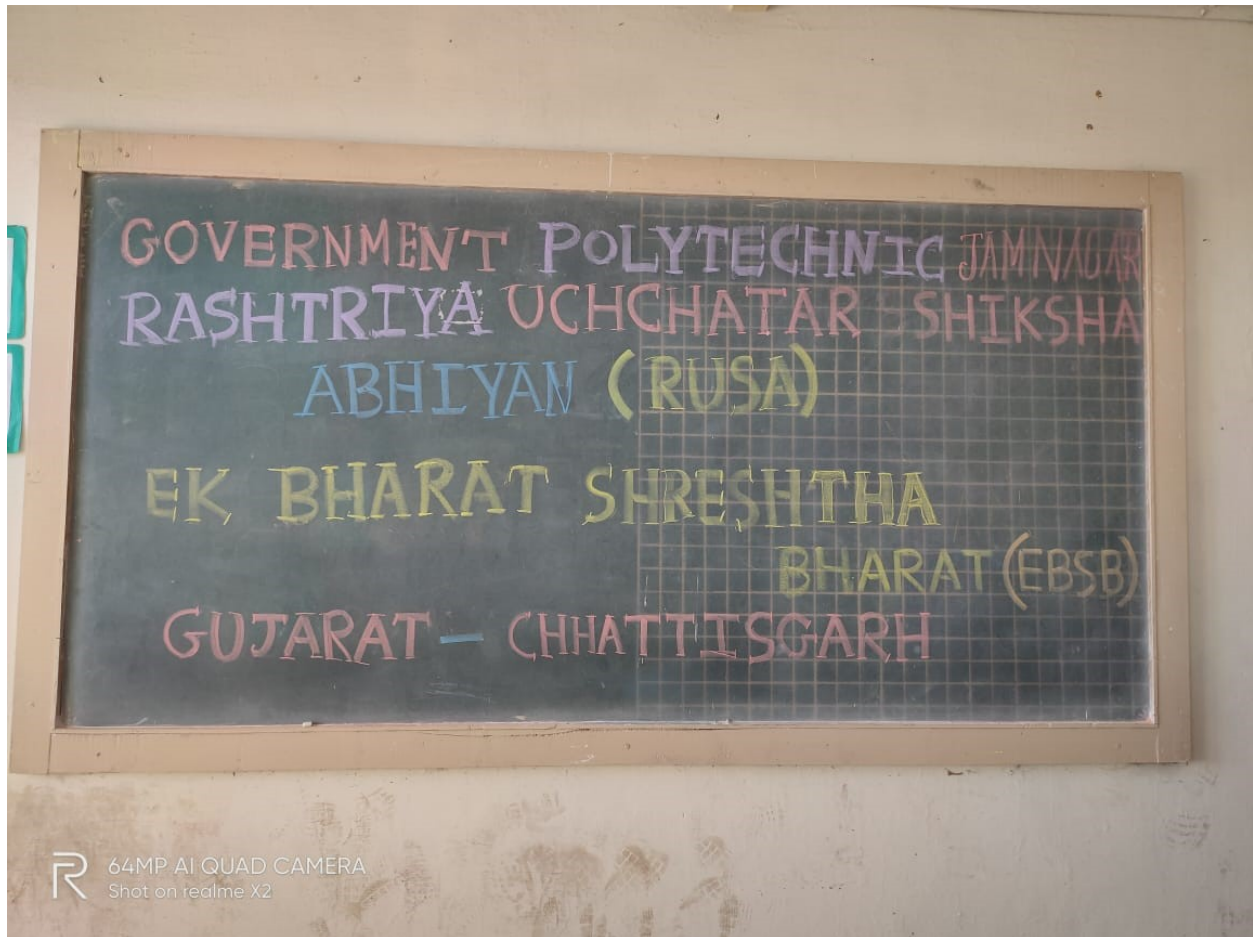 GOVERNMENT POLYTECHNIC JAMNAGAR
RASHTRIYA UCHCHATAR SHIKSHA
ABHIYAN (RUSA)
EK BHARAT SHRESHTHA
BHARAT (EBSB)
GUJARAT - CHHATTISGARH
64MP AI QUAD CAMERA
Shot on realme X2